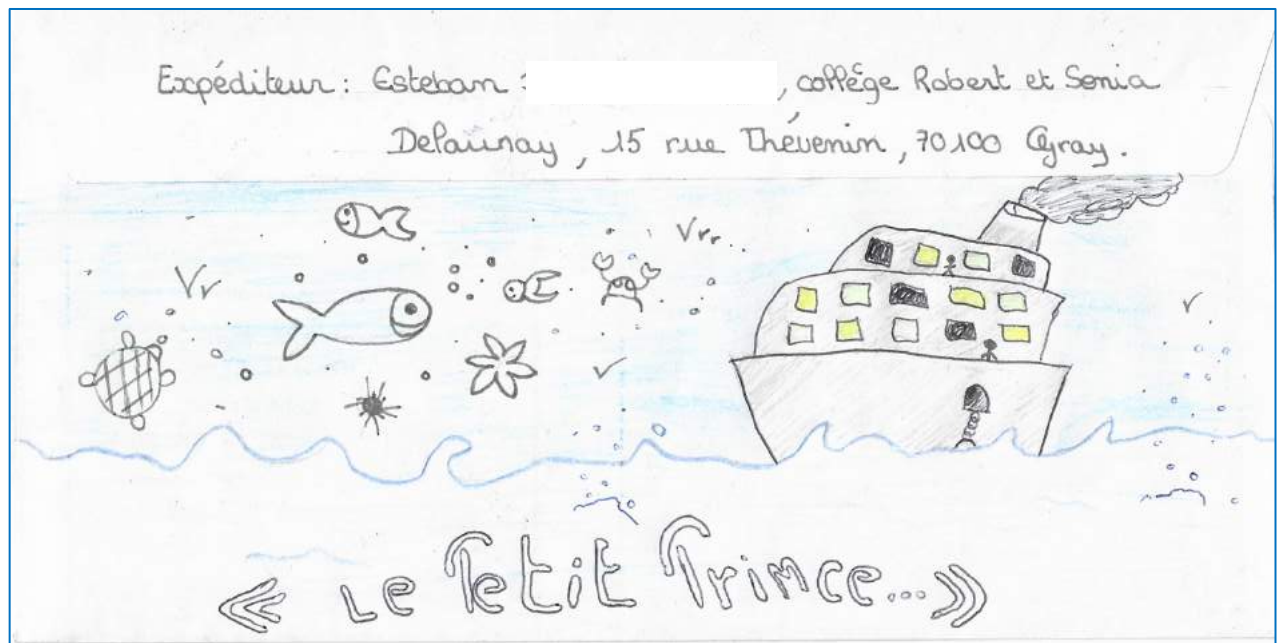 Expéditeur : Esteban , collège Robert et Sonia
Delaunay , 15 rue Thévenin , 70100 Gray .
« Le Petit Prince... »